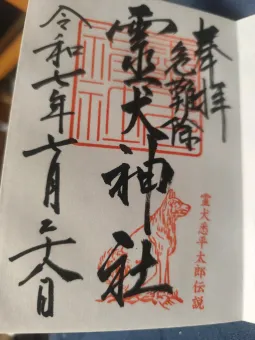 奉拝
危難除
霊犬神社
令和七年七月二十八日
霊犬悉平太郎伝説